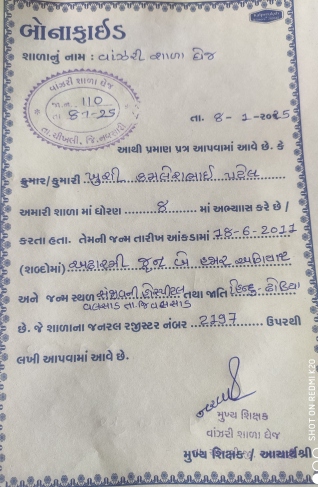 બોનાફાઈડ
શાળાનું નામ : વાંઝરી શાળા ઘેજ
વાંઝરી શાળા ઘેજ
જા.નં. 110
તા. 8-1-25
તા. ચીખલી, જિ. નવસારી
તા. 8-1-2025
આથી પ્રમાણ પત્ર આપવામાં આવે છે. કે
કુમાર/કુમારી ખુશી કમલેશભાઈ પટેલ
અમારી શાળા માં ધોરણ 8 માં અભ્યાસ કરે છે /
કરતા હતા. તેમની જન્મ તારીખ આંકડામાં 18-6-2011
(શબ્દોમાં) અઢારમી જૂન બે હજાર અગિયાર
અને જન્મ સ્થળ હોસ્પીટલ તથા જાતિ હિન્દુ-ઢોડિયા
વલસાડ તા.જિ વલસાડ
છે. જે શાળાના જનરલ રજીસ્ટર નંબર 2197 ઉપરથી
લખી આપવામાં આવે છે.
મુખ્ય શિક્ષક
વાંઝરી શાળા ઘેજ
મુખ્ય શિક્ષક / આચાર્યશ્રી
SHOT ON REDMI K20